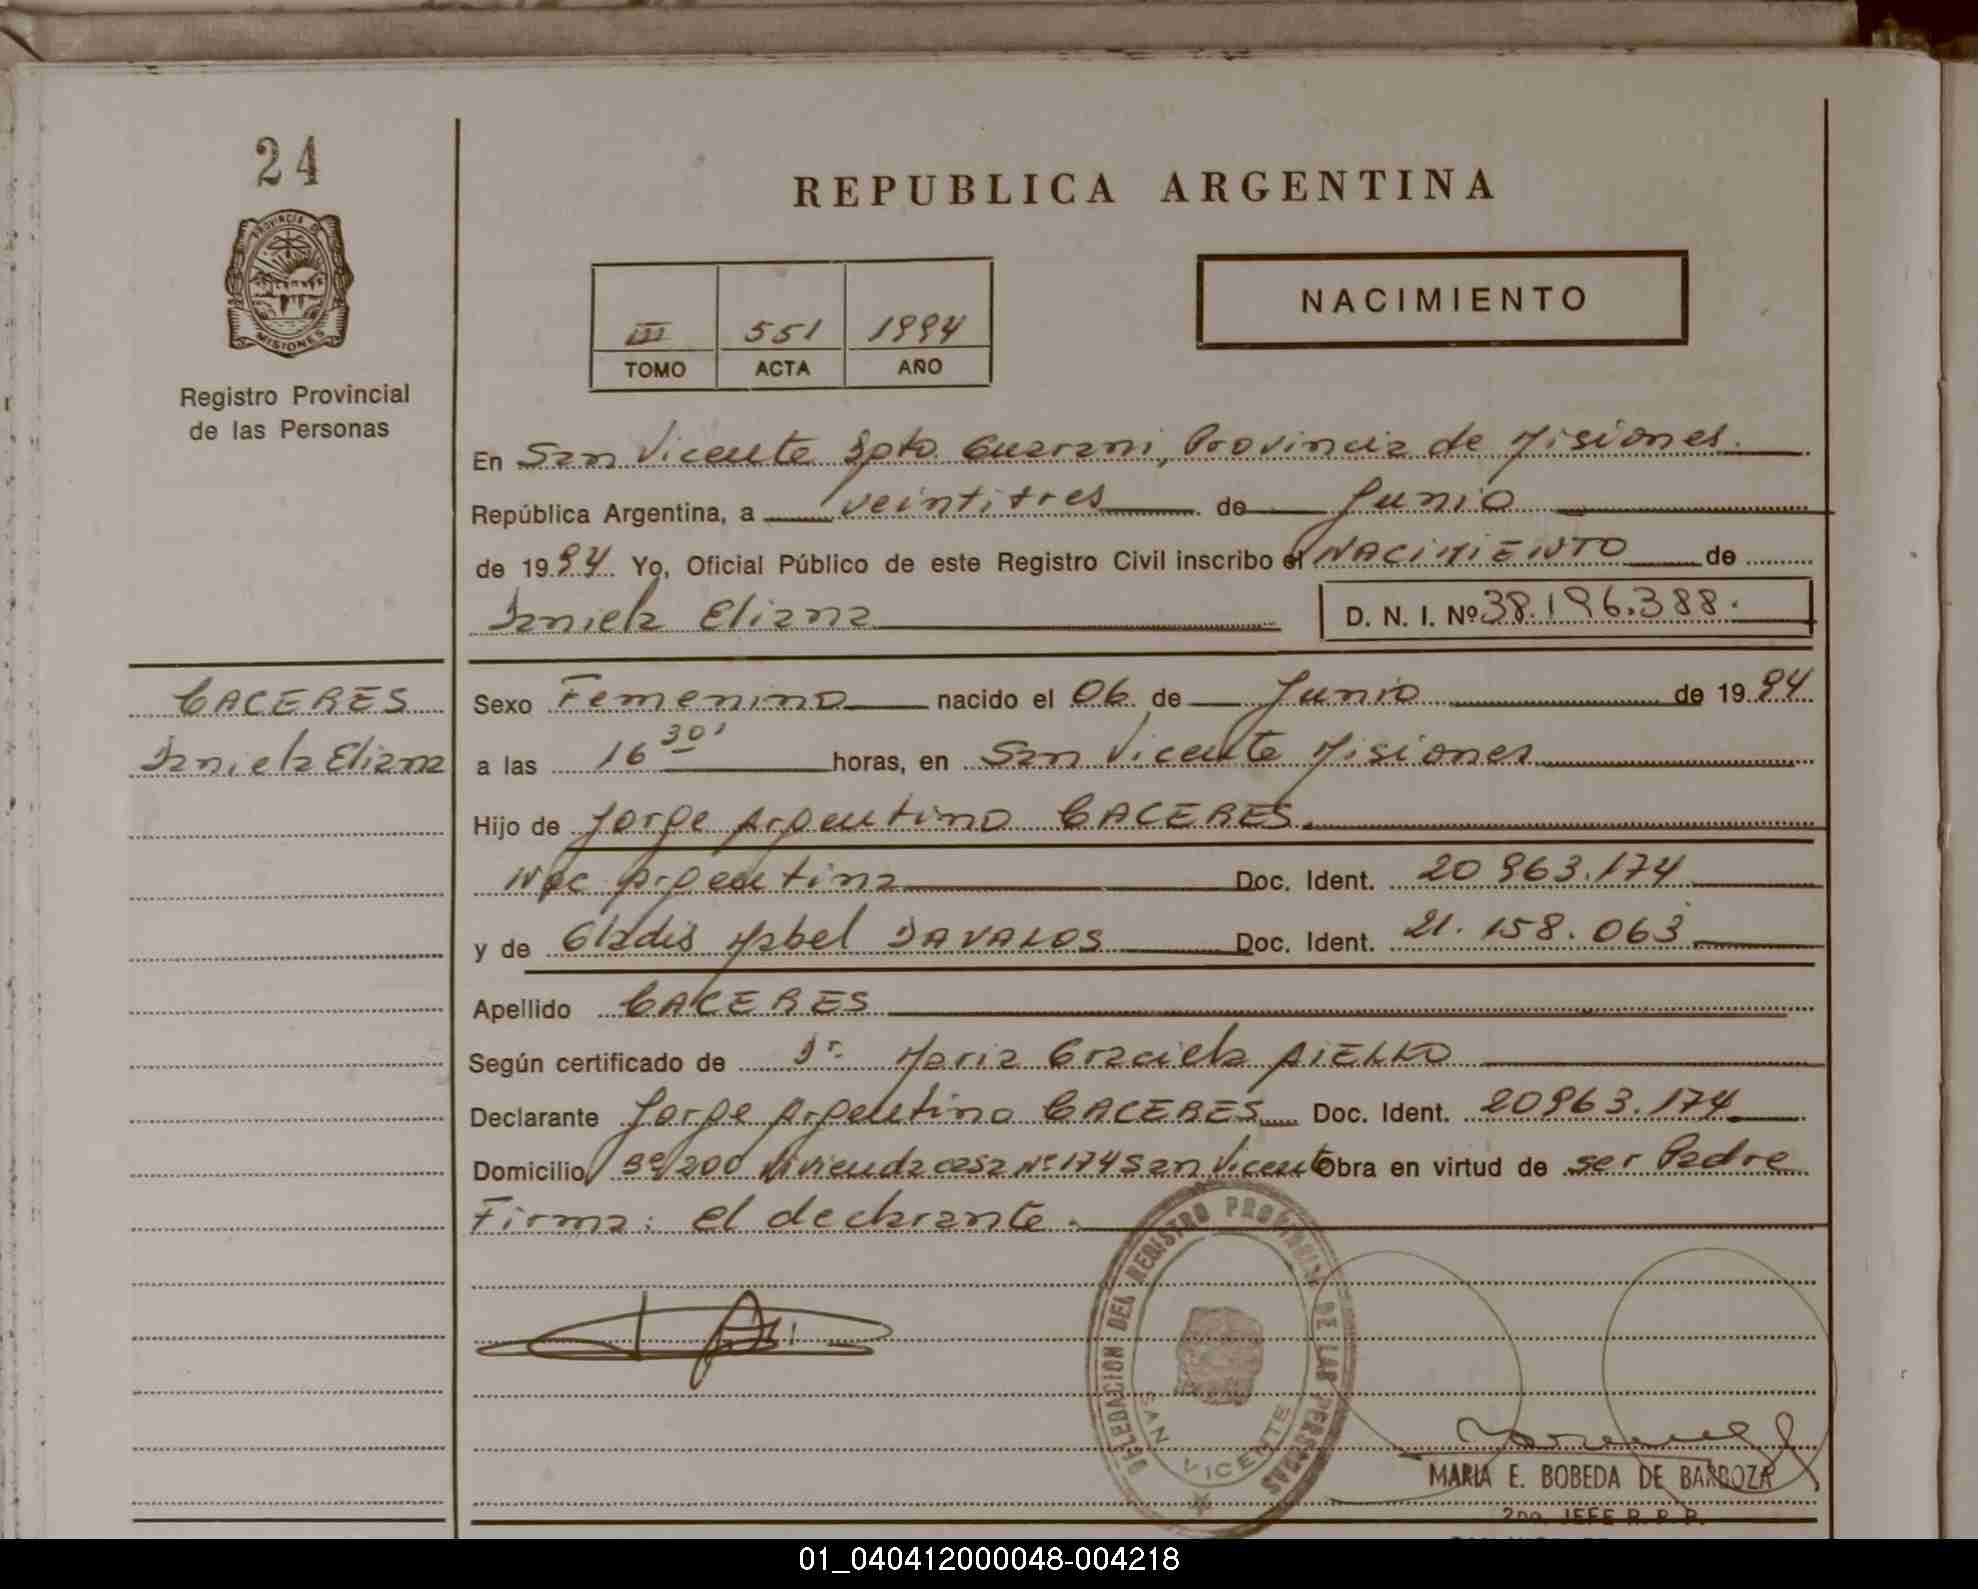 24
PROVINCIA DE
MISIONES
Registro Provincial
de las Personas
REPUBLICA ARGENTINA
III 551 1994
TOMO ACTA AÑO
NACIMIENTO
En San Vicente Dpto. Guarani, Provincia de Misiones.
República Argentina, a veintitres de Junio
de 1994 Yo, Oficial Público de este Registro Civil inscribo el NACIMIENTO de
Daniela Eliana D. N. I. Nº 38.196.388.
CACERES
Daniela Eliana
Sexo Femenino nacido el 06 de Junio de 1994
a las 16 30' horas, en San Vicente Misiones
Hijo de Jorge Argentino CACERES.
Nac Argentina Doc. Ident. 20 963.174
y de Gladis Mabel DAVALOS Doc. Ident. 21.158.063
Apellido CACERES
Según certificado de Dr. Maria Graciela AIELLO
Declarante Jorge Argentino CACERES Doc. Ident. 20963.174
Domicilio Bº 200 Vivienda casa Nº 174 San Vicente Obra en virtud de ser Padre
Firma: el declarante.
DELEGACION DEL REGISTRO PROVINCIAL DE LAS PERSONAS
SAN VICENTE
MARIA E. BOBEDA DE BARBOZA
2do. JEFE R. P. P.
01_040412000048-004218